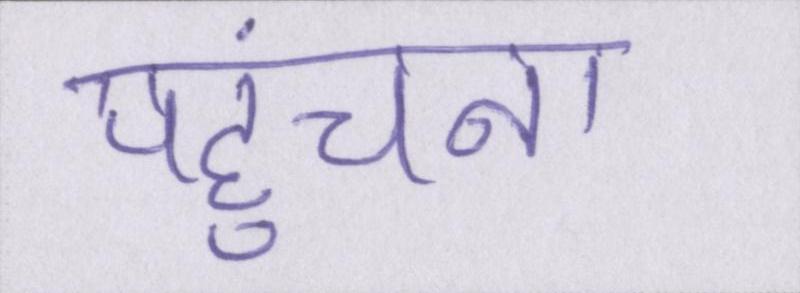 पहुंचना